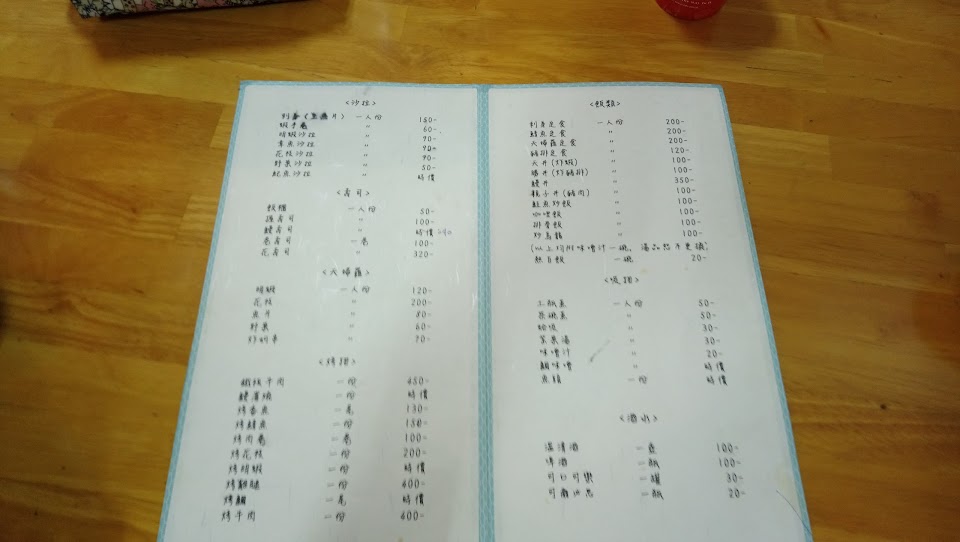 <沙拉>
刺身(生魚片) 一人份 150-
蝦手卷 〃 60-
明蝦沙拉 〃 90-
章魚沙拉 〃 90-
花枝沙拉 〃 90-
野菜沙拉 〃 50-
鮭魚沙拉 〃 時價
<壽司>
飯糰 一人份 50-
握壽司 〃 100-
鰻壽司 〃 時價
卷壽司 一卷 100-
花壽司 〃 320-
<天婦羅>
明蝦 一人份 120-
花枝 〃 200-
魚片 〃 80-
野菜 〃 60-
炸奶 〃 70-
<烤類>
鐵板牛肉 一份 450-
鰻蒲燒 一份 時價
烤香魚 一尾 130-
烤鯖魚 一份 150-
烤肉卷 一卷 100-
烤花枝 一份 200-
烤明蝦 一份 時價
烤雞腿 一份 400-
烤鯛 一尾 時價
烤牛肉 一份 400-
<飯類>
刺身定食 一人份 200-
鯖魚定食 〃 200-
天婦羅定食 〃 200-
豬排定食 〃 120-
天丼(炸蝦) 〃 100-
勝丼(炸豬排) 〃 100-
鰻丼 〃 350-
親子丼(豬肉) 〃 100-
鮭魚炒飯 〃 100-
咖哩飯 〃 100-
排骨飯 〃 100-
炒烏龍 〃 100-
(以上均附味噌汁一碗,湯品恕不更換)
熱白飯 一碗 20-
<吸類>
土瓶蒸 一人份 50-
茶碗蒸 〃 50-
蛤吸 〃 30-
野菜湯 〃 30-
味噌汁 〃 20-
鯛味噌 〃 時價
魚頭 一份 時價
<酒水>
溫清酒 一壺 100-
啤酒 一瓶 100-
可口可樂 一罐 30-
可爾必思 一瓶 20-